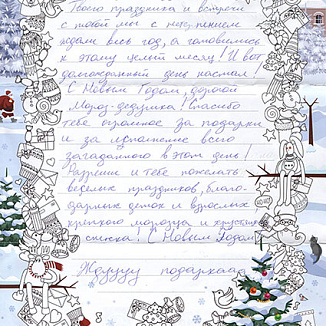 Твоего праздника и встречи
с тобой мы с нетерпением
ждали весь год, а готовились
к этому целый месяц! И вот
долгожданный день настал!
С Новым Годом, дорогой
Мороз-дедушка! Спасибо
тебе огромное за подарки
и за исполнение всего
загаданного в этот день!
Разреши и тебе пожелать
веселых праздников, благо-
дарных деток и взрослых
крепкого мороза и хрустящего
снежка! С Новым Годом!
Жду подарка